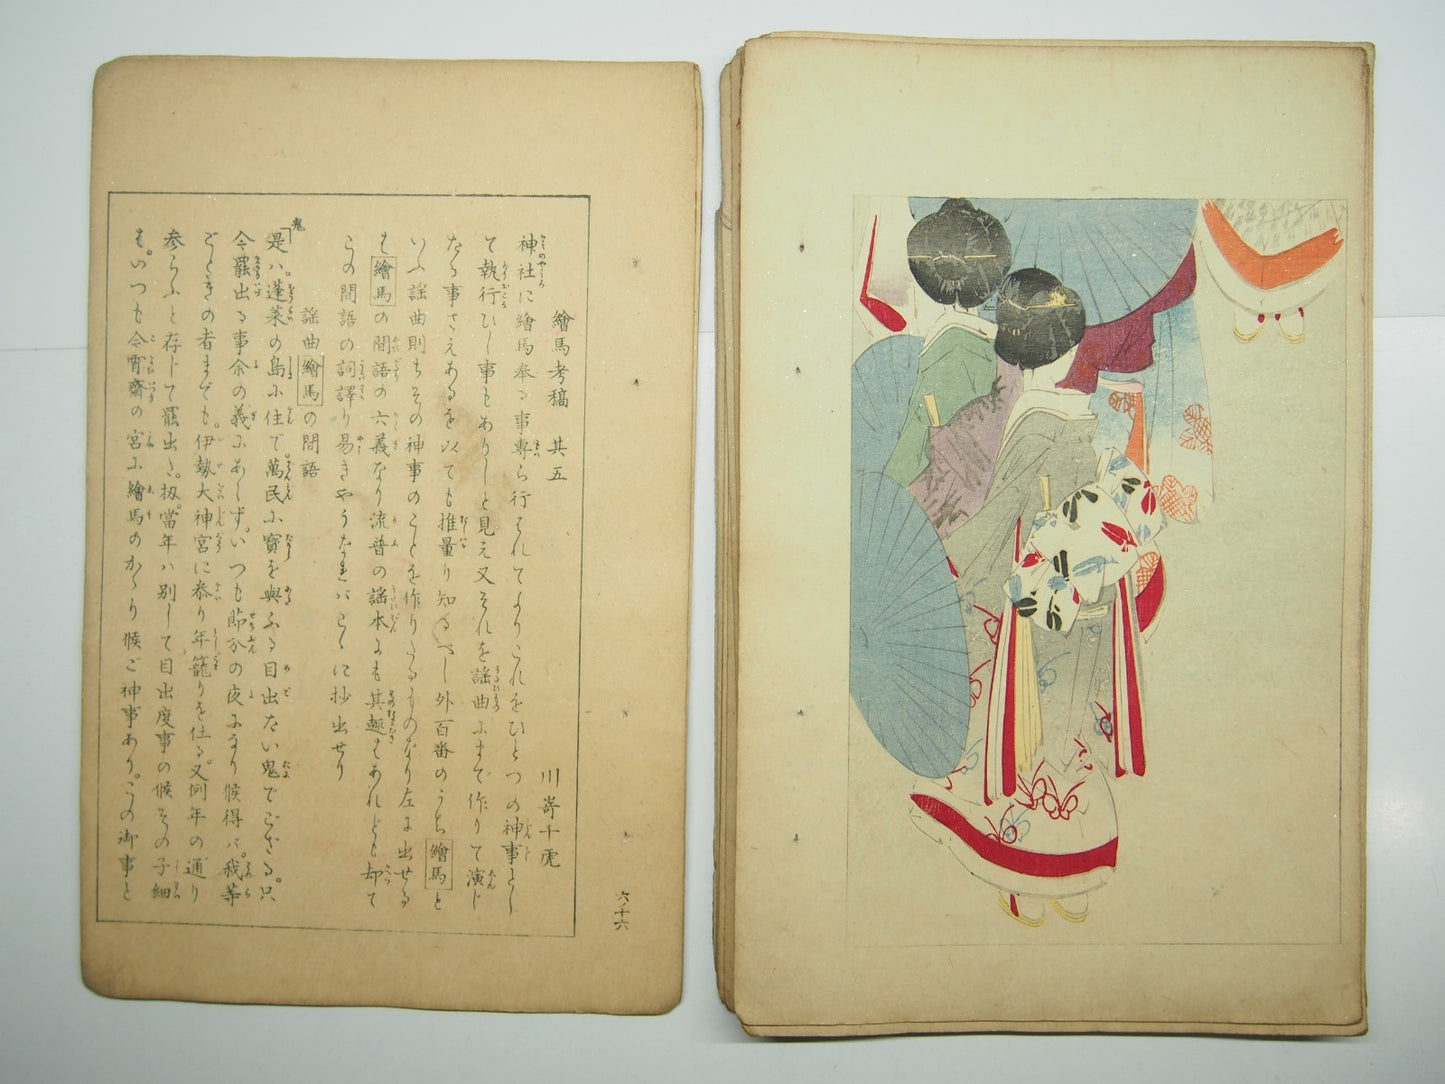 繪馬考稿 其五
川嵜千虎
神社に繪馬奉る事專ら行はれてよりこれをひとつの神事とし
て執行ひし事もありしと見え又それを謡曲にまで作りて演じ
たる事さえあるを以ても推量り知るべし外百番のうち繪馬と
いふ謡曲則ちその神事のことを作りたるものなり左に出せる
は繪馬の間語の六義なり流普の謡本にも其趣はあれども却て
この間語の詞譯り易きやうなればこゝに抄出せり
謡曲繪馬の間語
鬼「是ハ蓬莱の島に住で。萬民に寳を與ふる目出たい鬼でござる。只
今罷出る事余の義にあらず。いつも節分の夜になり候得バ。我等
ごときの者までも。伊勢大神宮に参り年籠りを仕る。又例年の通り
参らふと存じて罷出た。扨當年ハ別して目出度事の候その子細
は。いつも今宵齋の宮に繪馬のかゝり候ご神事あり。この御事と
六ノ十六